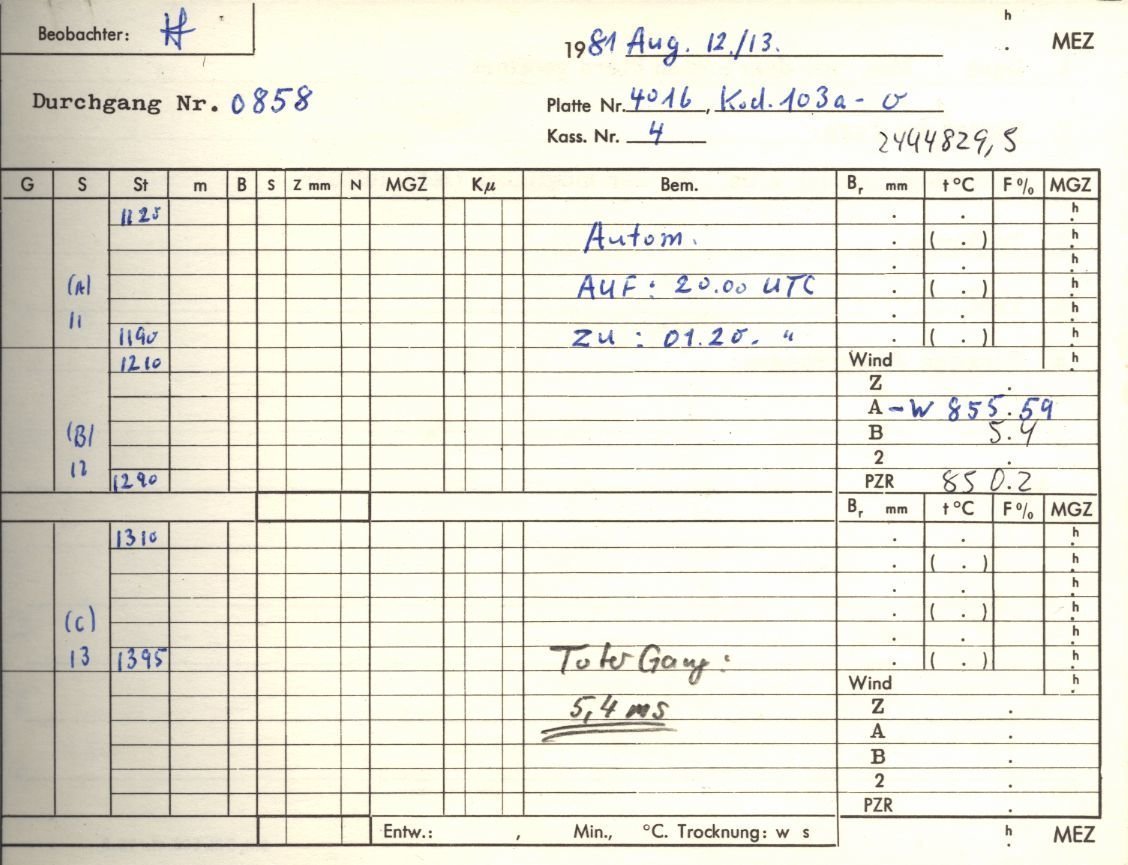 Beobachter: H h
1981 Aug. 12./13. . MEZ
Durchgang Nr. 0858 Platte Nr. 4016, Kod. 103a-O
Kass. Nr. 4 2444829,5
G S St m B S Z mm N MGZ Kμ Bem. Br mm t°C F% MGZ
1125 . . h
Autom. . ( . ) h
. . h
(A) AUF: 20.00 UTC . ( . ) h
11 . . h
1190 ZU : 01.20. " . ( . ) h
1210 Wind h
Z .
A -W 855.59
(B) B 5.4
12 2 .
1290 PZR 850.2
Br mm t°C F% MGZ
1310 . . h
. ( . ) h
. . h
(C) . ( . ) h
. . h
13 1395 Toter Gang: . ( . ) h
Wind h
5,4 ms Z .
A .
B .
2 .
PZR .
Entw.: , Min., °C. Trocknung: w s h . MEZ